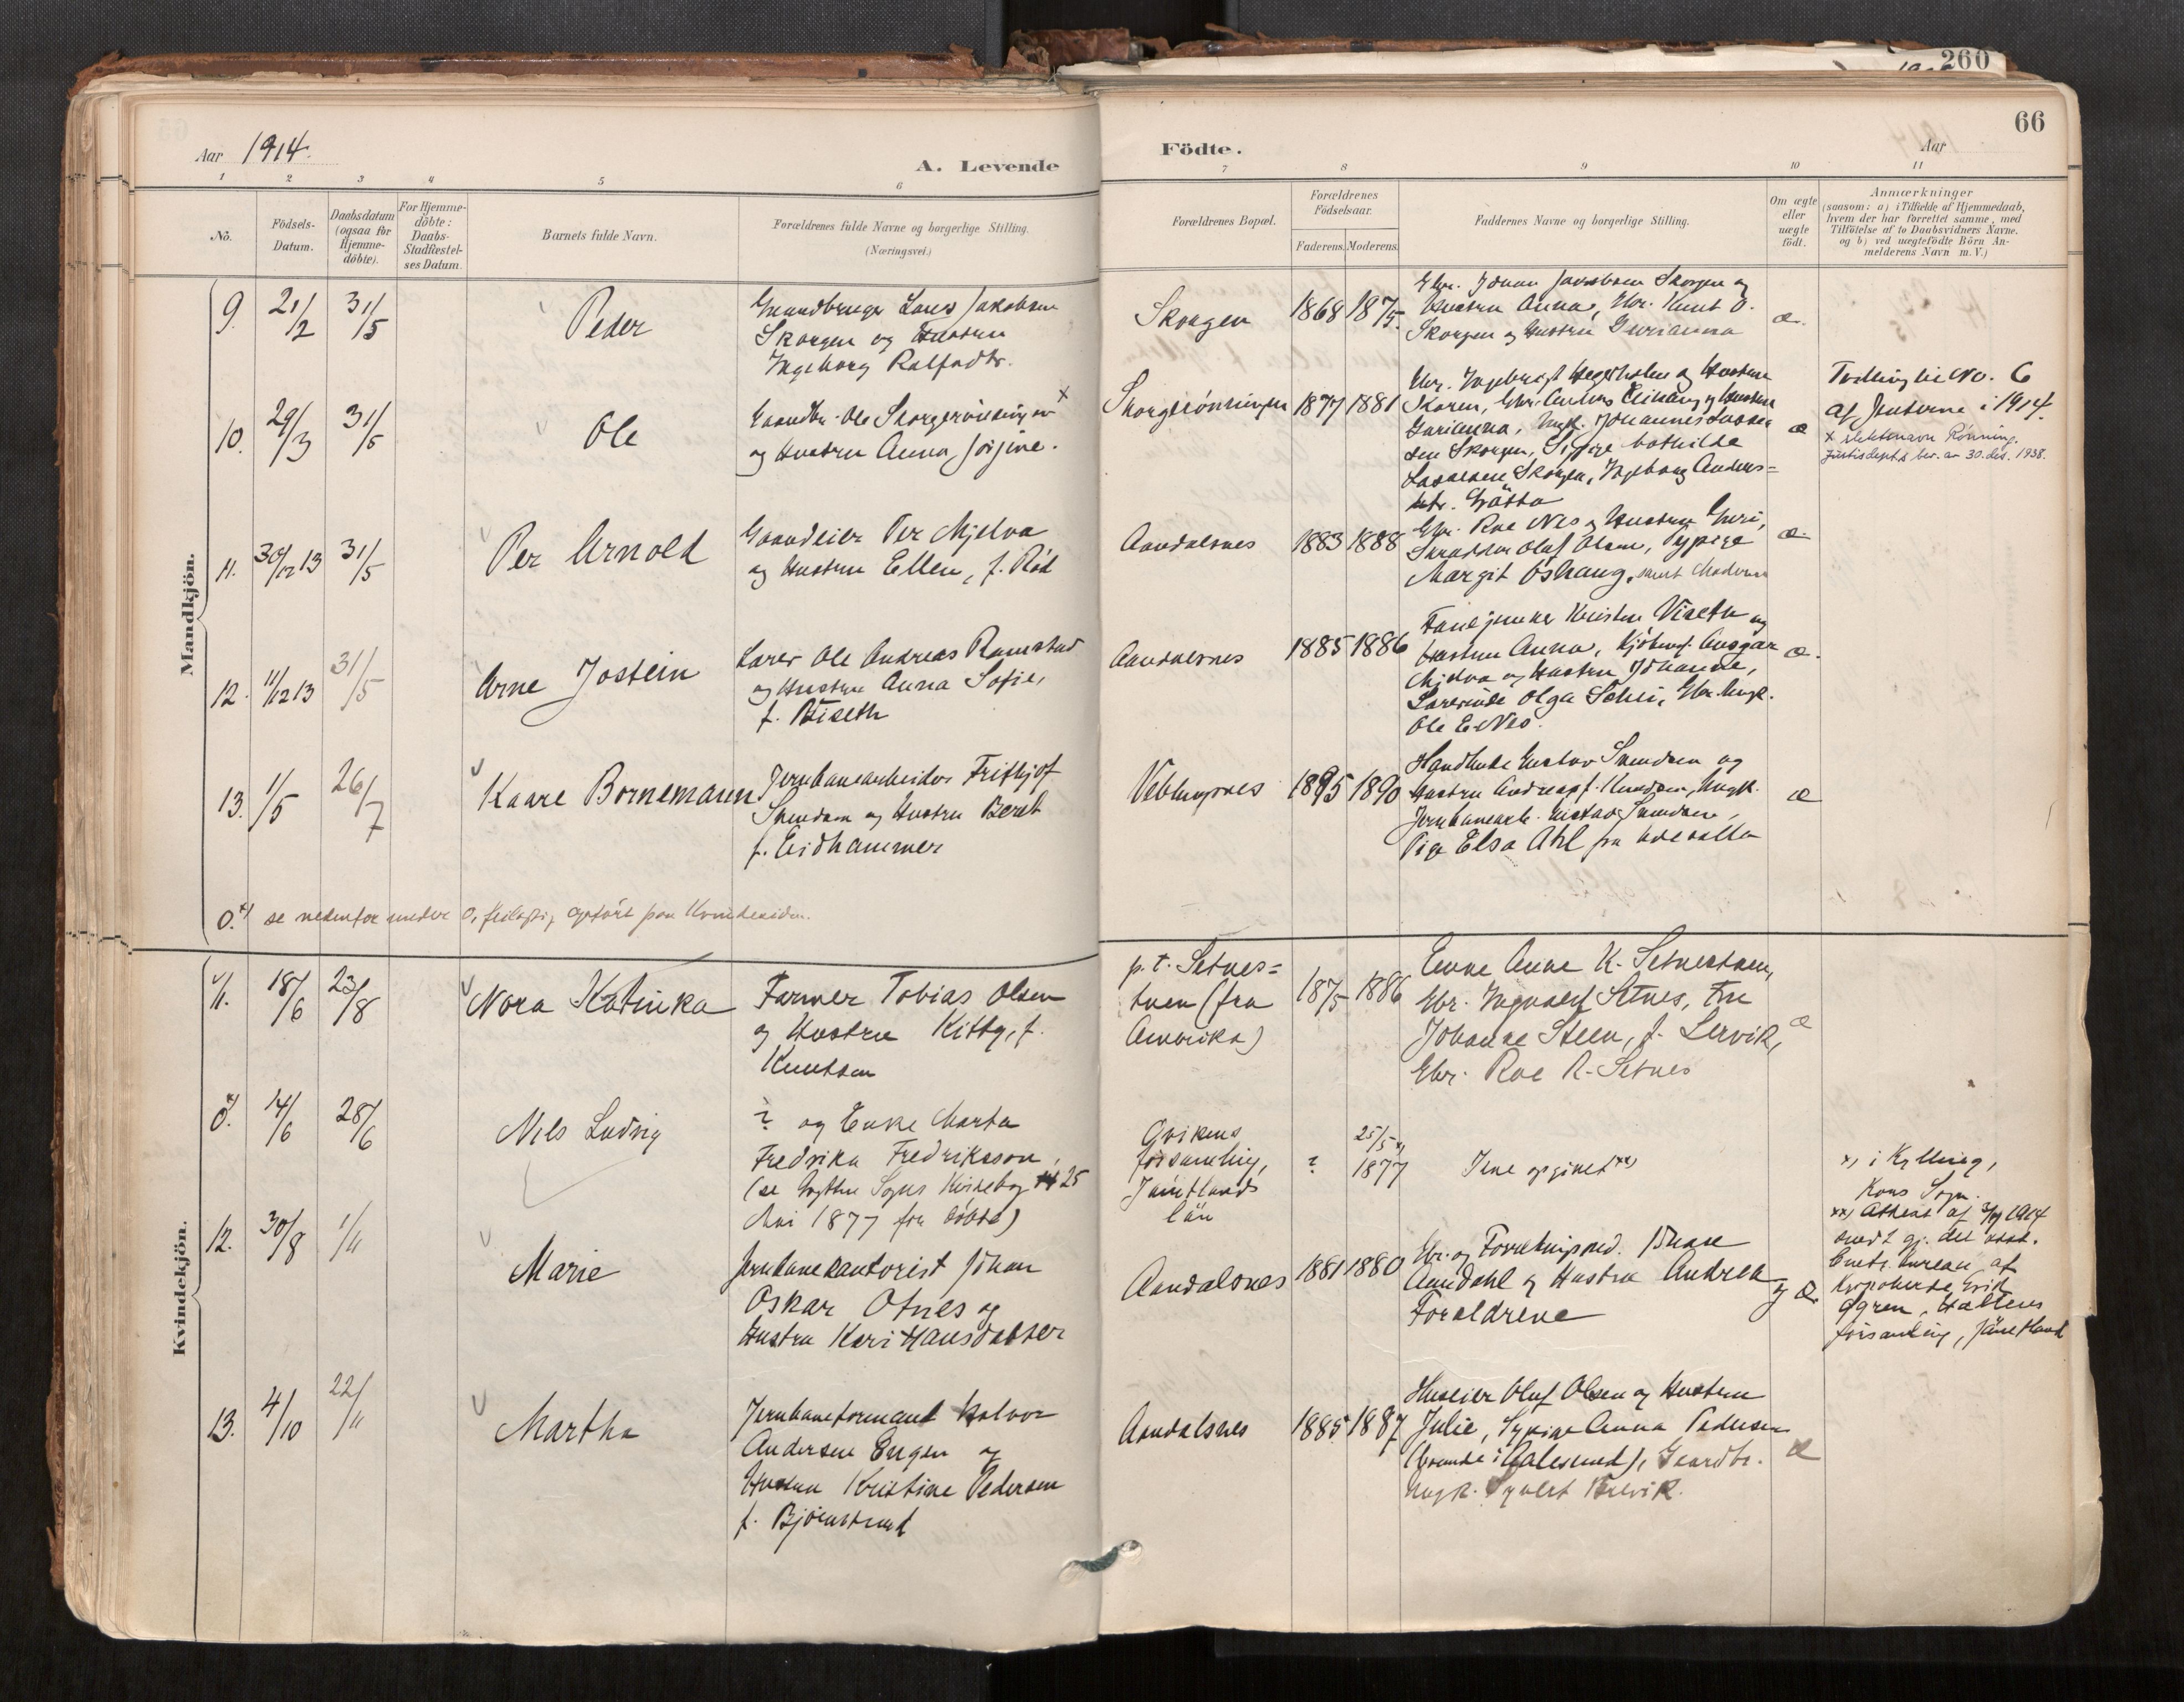 260
66
Aar 1914.
A. Levende
Födte.
Aar
1 2 3 4 5 6 7 8 9 10 11
Nö.
Födsels-
Datum.
Daabsdatum
(ogsaa for
Hjemme-
döbte).
For Hjemme-
döbte:
Daabs-
Stadfæstel-
ses Datum.
Barnets fulde Navn.
Forældrenes fulde Navne og borgerlige Stilling.
(Næringsvei.)
Forældrenes Bopæl.
Forældrenes
Födselsaar.
Faderens. Moderens.
Faddernes Navne og borgerlige Stilling.
Om ægte
eller
uægte
födt.
Anmærkninger
(saasom: a) i Tilfælde af Hjemmedaab,
hvem der har forrettet samme, med
Tilföielse af to Daabsvidners Navne.
og b) ved uægtefödte Börn An-
melderens Navn m. V.)
Mandkjön.
9. 21/2 31/5
Peder
Gaardbruger Lars Jakobsen
Skorgen og Hustru
Ingeborg
Skorgen
1868 1875.
Gbr. Johan Jakobsen Skorgen og
Hustru Anna, Gbr. Knut O.
Skorgen og Hustru Gurianna
æ.
10. 29/3 31/5
Ole
Gaardbr. Ole Skorgerönningen x
og Hustru Anna Jörgine.
Skorgerönningen
1877 1881
Gbr. Ingebrigt Hegerholm og Hustru
Karen, Gbr. Anders og Hustru
Gurianna, Ungk. Johannes Lasse
sen Skorgen, Bothilde
Lassesen Skorgen, Ingeborg Anders=
dtr.
æ
Tvilling til No. 6
af Jenterne i 1914.
x slektsnavn Rønning.
Justisdept.s bev. av 30. des. 1938.
11. 30/12 13 31/5
Per Arnold
Gaardeier Per Mjelva
og Hustru Ellen, f. Röd
Aandalsnes
1883 1888
Gbr. Roe Nes og Hustru Guri,
Skrædder Olaf Olsen, Sypige
Margit Oshaug, samt Moderen
æ.
12. 11/12 13 31/5
Arne Jostein
Lærer Ole Andreas Ramstad
og Hustru Anna Sofie,
f. Viseth
Aandalsnes
1885 1886
Fanejunker Kristen Viseth og
Hustru Anna, Kjöbm. Ansgar
Mjelva og Hustru Johanne,
Lærerinde Olga Schei, Gbr. Ungk.
Ole E. Nes.
æ.
13. 1/5 26/7
Kaare Bornemann
Jernbanearbeider Frithjof
Svendsen og Hustru Beret
f. Eidhammer
Veblungsnes
1895 1890
Handlende Gustav Svendsen og
Hustru Andrea f. Knudsen, Ungk.
Jernbanearb. Gustav Svendsen,
Pige Elsa Ahl fra Udevalla
æ
0. x) se nedenfor under 0, feilagtig opfört paa Kvindesiden.
Kvindekjön.
11. 18/6 23/8
Nora Katinka
Farmer Tobias Olsen
og Hustru Kitty, f.
Knutsen
p. t. Setnes=
tuen (fra
Amerika)
1875 1886
Enke Anne K. Setnestuen,
Gbr. Ingvald Setnes, Fru
Johanne Steen, f. Lervik,
Gbr. Roe R. Setnes
æ
x) 0. 14/6 28/6
Nils Ludvig
? og Enke Marta
Fredrika Fredriksson,
(se Sogns Kirkebog 25
Mai 1877 fra döbte)
Ovikens
församling,
Jämtlands
län
?
25/5 x)
1877
Ikke opgivet xx)
x) i Kylling,
Kors Sogn.
xx) Attest af 3/9 1914
gj. det
bureau af
Erik
Ågren, Hallens
församling, Jämtland
12. 30/8 1/11
Marie
Jernbanekontorist Johan
Oskar Otnes og
Hustru Kari Hansdatter
Aandalsnes
1881 1880
Gbr. og Forretningsmd. Johan
Aandahl og Hustru Andrea og
Forældrene
æ.
13. 4/10 22/11
Martha
Jernbaneformand Halvor
Andersen Engen og
Hustru Kristine Pedersen
f. Björnstrand
Aandalsnes
1885 1887
Huseier Oluf Olsen og Hustru
Julie, Sypige Anna Pedersen
(boende i Aalesund), Gaardbr.
Ungk. Syvert
æ